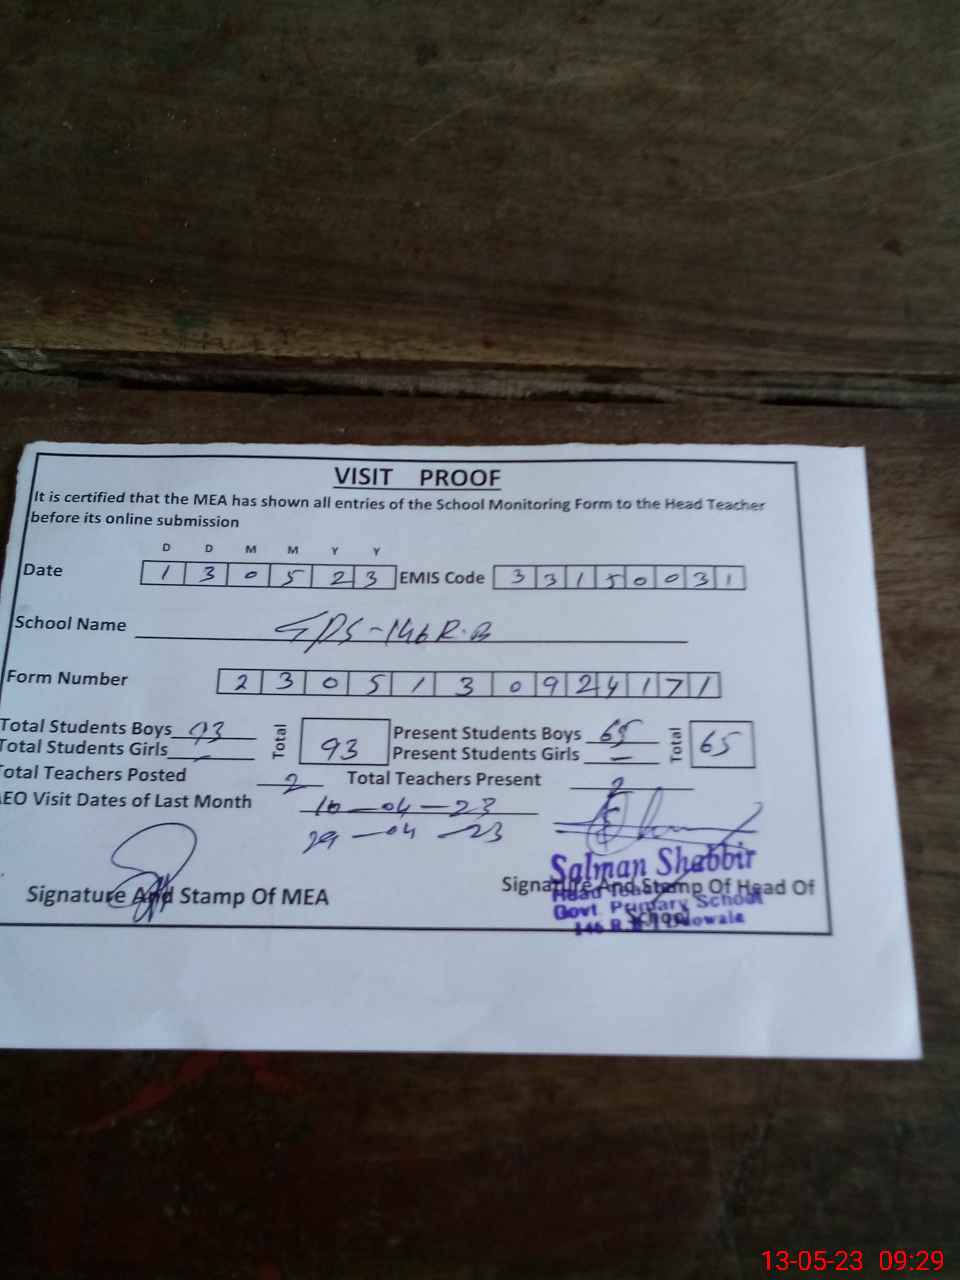 VISIT PROOF
It is certified that the MEA has shown all entries of the School Monitoring Form to the Head Teacher
before its online submission
D D M M Y Y
Date 1 3 0 5 2 3 EMIS Code 3 3 1 5 0 0 3 1
School Name GPS-146 R.B
Form Number 2 3 0 5 1 3 0 9 2 4 1 7 1
Total Students Boys 93 Total 93 Present Students Boys 65 Total 65
Total Students Girls - Present Students Girls -
Total Teachers Posted 2 Total Teachers Present 2
AEO Visit Dates of Last Month 16-04-23
29-04-23
Salman Shabbir
Signature And Stamp Of MEA Signature And Stamp Of Head Of
School
Head Teacher
Govt. Primary School
146 R.B
13-05-23 09:29